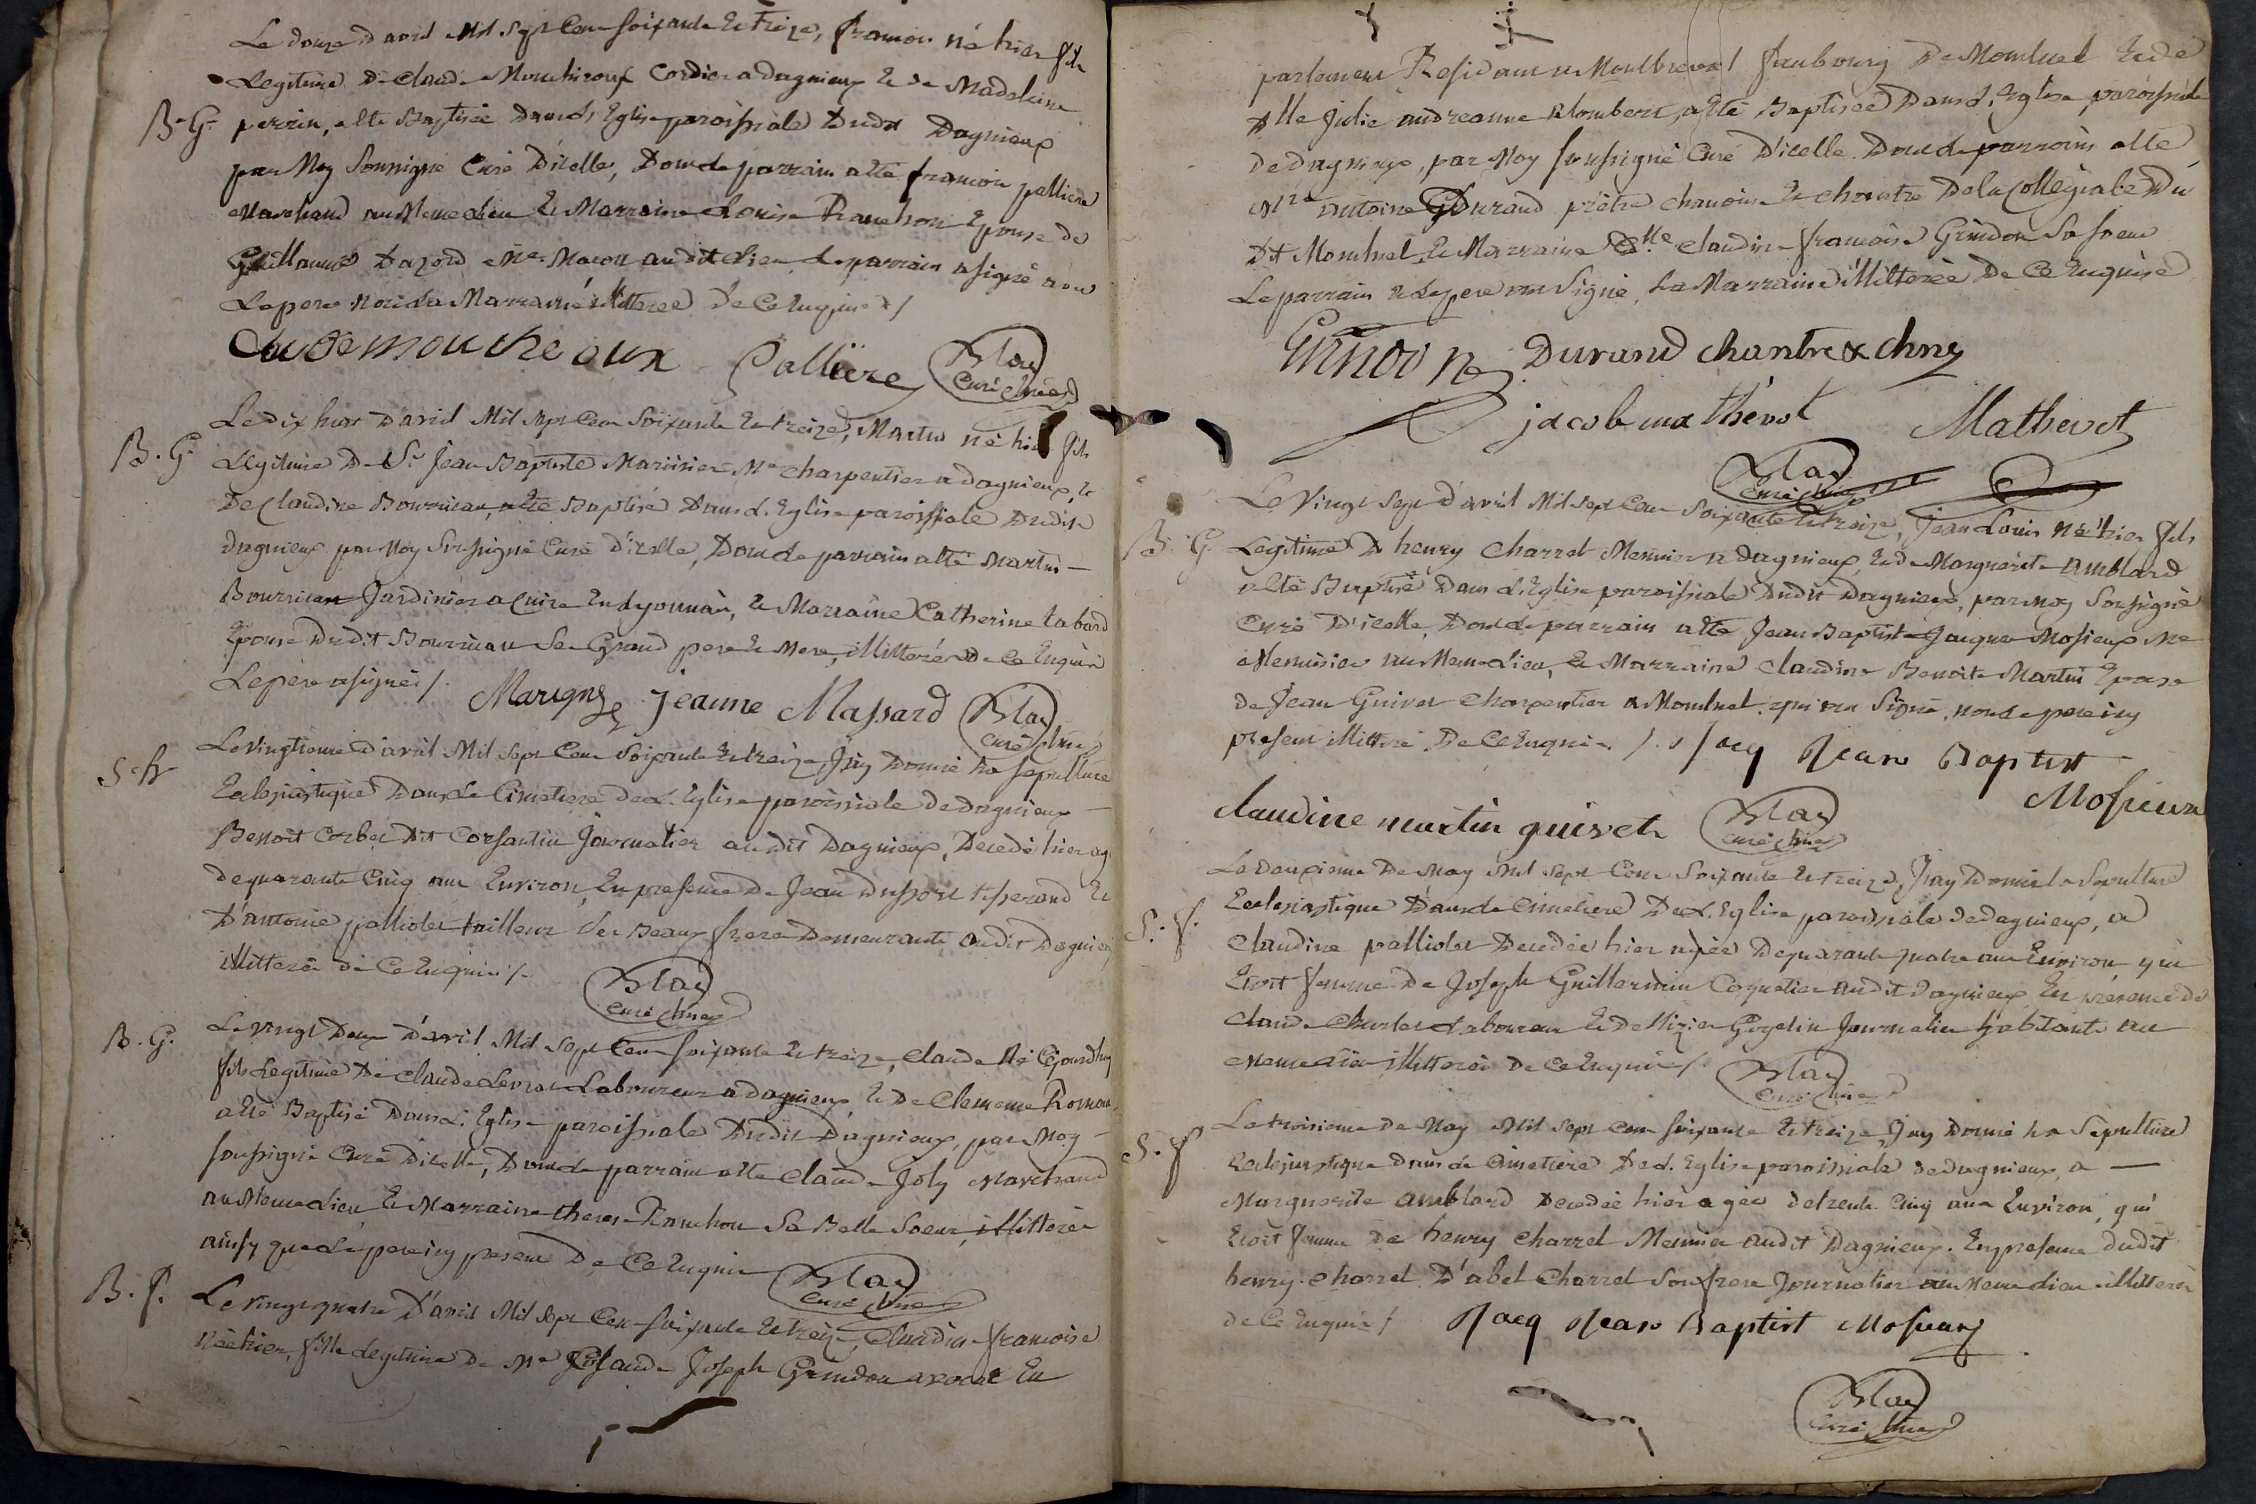 Le douze d'avril Mil Sept Cent soixante et treize, francois né hier fils
Legitime de Claude Moucheroux Cordier a dagnieux et de Madelaine
B. G. perrin, a eté Baptisée dans l'Eglise paroissiale dudit Dagnieux
par Moy Soussigné Curé D'icelle, Dont le parrain a eté francois palliere
Marchand au Meme lieu et Marraine Louise Ranchon Epouse de
Guillaume Me Macon audit lieu, le parrain a signé avec
Le pere non la Marraine illitterée de ce Enquise /.
Claude moucheroux Palliere Blay Curé
Le dix huit D'avril Mil Sept Cent Soixante et treize, Martin né hier fils
B. G. Legitime De Sr Jean Baptiste Me charpentier a dagnieux, et
De Claudine Bourricau, a eté Baptisé Dans L'Eglise paroissiale Dudit
dagnieux par Moy Soussigné Curé D'icelle, Dont le parrain a eté Martin
Bourricau Jardinier a Cuire en Lyonnais, et Marraine Catherine tabard
Epouse Dudit Bourricau Ses Grand pere et Mere, illitterés de ce Enquis
Le pere a signé /. Jeanne Massard Blay curé
Le Vingtieme D'avril Mil Sept Cent Soixante et treize, J'ay Donné la sepulture
Eclesiastique Dans le Cimetiere de L'Eglise paroissiale de Dagnieux
Benoit Corbet Dit Corsantin Journalier audit Dagnieux, Decedé hier agé
de quarante Cinq ans Environ, En presence de Jean tisserand Et
D'antoine palliolet tailleur Ses Beaux frere Demeurants audit Dagnieux
illitterés de Ce Enquis /.
Blay curé
B. G. Le vingt Deux D'avril Mil Sept Cent soixante et treize, Claude Né Cejourdhuy
fils Legitime De Claude Levrat Laboureur a dagnieux, et De Clemence Roman
a eté Baptisé Dans L'Eglise paroissiale Dudit Dagnieux, par Moy
soussigné Curé D'icelle, Dont le parrain a eté Claude Joly Marchand
au Meme Lieu et Marraine therese Ranchon Sa Belle Soeur, illitterée
ainsy que Le pere icy present De Ce Enquis
Blay curé
B. f. Le vingt quatre D'avril Mil Sept Cent soixante et treize, Claudine francoise
Née hier, fille Legitime de Me Joseph Grindon avocat En
parlement Residant a Montbreval faubourg De Montluel et de
Dlle Julie andreanne a eté Baptisée Dans L'Eglise paroissiale
de Dagnieux, par Moy soussigné Curé D'icelle Dont le parrain a eté
Mre antoine Durand prêtre chanoine et chantre De la Collegiale Du
Dit Montluel, et Marraine Dlle Claudine francoise Grindon Sa soeur
Le parrain et Le pere ont Signé, La Marraine illitterée De Ce Enquise
Grindon Durand chantre & chne
jacob mathevot Mathevot
Blay curé
Le Vingt Sept D'avril Mil Sept Cent Soixante et treize, Jean Louis né hier fils
B. G. Legitime De henry Charrel Meunier a Dagnieux, et de Marguerite amblard
a eté Baptisé Dans L'Eglise paroissiale Dudit Dagnieux, par moy Soussigné
Curé D'icelle, Dont le parrain a eté Jean Baptiste Jacques Mosieux Me
Menuisier au Meme Lieu, et Marraine Claudine Benoite Martin Epouse
de Jean Guivet charpentier a Montluel, qui ont Signé, non le pere icy
present illitteré De Ce Enquis /. Jacq Jean Baptist
Mosieux
claudine martin guivet Blay curé
Le Deuxieme De May Mil Sept Cent Soixante et treize, J'ay Donné la Sepulture
S. f. Eclesiastique Dans le Cimetiere De L'Eglise paroissiale de dagnieux, a
Claudine palliolet Decedée hier agée De quarante quatre ans Environ qui
Etoit femme De Joseph Guillermin Coquetier audit dagnieux En presence de
Claude Charles Laboureur et de Nizier Gozelin Journalier habitants au
Meme Lieu illitterés De Ce Enquis /.
Blay curé
Le troisieme De May Mil Sept Cent soixante et treize, J'ay Donné la Sepulture
S. f Eclesiastique Dans le Cimetiere De L'Eglise paroissiale de dagnieux, a
Marguerite amblard Decedée hier agée de trente Cinq ans Environ, qui
Etoit femme De henry Charrel Meunier audit Dagnieux. En presence dudit
henry Charrel D'abel Charrel Son frere Journalier au Meme Lieu illitterés
de Ce Enquis / Jacq Jean Baptist Mosieux
Blay curé